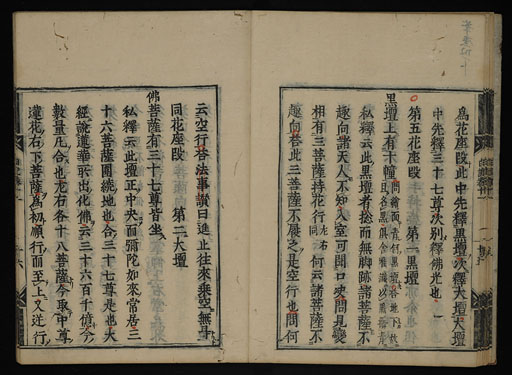 爲花座段此中先釋黑壇次釋大壇大壇
中先釋三十七尊次別釋佛光也
第五花座段　第一黑壇
黑壇上有十幢
私釋云此黑壇者捻而無脚跡諸菩薩不
趣向諸天人不知入室可聞口決問見變
相有三菩薩持花行左右同何云諸菩薩不
趣向答此三菩薩不履之是空行也問何
云空行答法事讃曰進止往來乘空無
同花座段　第二大壇
佛菩薩有三十七尊皆坐
私釋云此壇正中央而彌陀如來常居三
十六菩薩圍繞地也合三十七尊是也大
經說蓮華眾出化佛云三十六百千億今
數量凡合也左右各十八菩薩今取中尊
蓮花右下菩薩爲初順行而至上又逆行